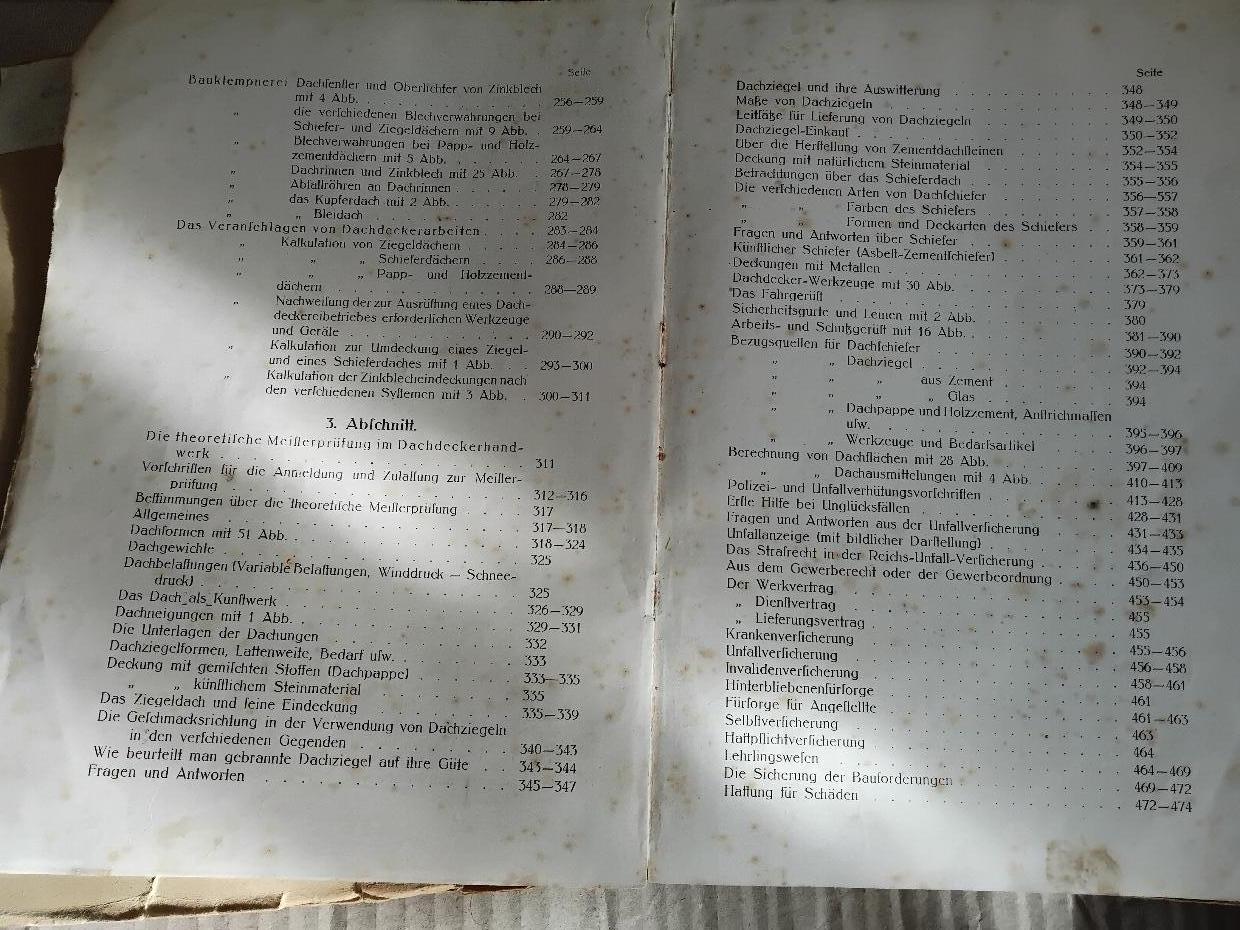 Seite
Bauklempnerei Dachfenſter und Oberlichter von Zinkblech
mit 4 Abb. . . . . . . . . . . 256—259
„ die verſchiedenen Blechverwahrungen bei
Schiefer- und Ziegeldächern mit 9 Abb. . 259—264
„ Blechverwahrungen bei Papp- und Holz-
zementdächern mit 5 Abb. . . . . . 264—267
„ Dachrinnen und Zinkblech mit 25 Abb. . 267—278
„ Abfallröhren an Dachrinnen . . . . . 278—279
„ das Kupferdach mit 2 Abb. . . . . . 279—282
„ „ Bleidach . . . . . . . . . 282
Das Veranſchlagen von Dachdeckerarbeiten . . . . 283—284
„ Kalkulation von Ziegeldächern . . . . 284—286
„ „ „ Schieferdächern . . . . 286—288
„ „ „ Papp- und Holzzement-
dächern . . . . . . . . . . 288—289
„ Nachweiſung der zur Ausrüſtung eines Dach-
deckereibetriebes erforderlichen Werkzeuge
und Geräte . . . . . . . . . 290—292
„ Kalkulation zur Umdeckung eines Ziegel-
und eines Schieferdaches mit 1 Abb. . . 293—300
„ Kalkulation der Zinkblecheindeckungen nach
den verſchiedenen Syſtemen mit 3 Abb. . 300—311
3. Abſchnitt.
Die theoretiſche Meiſterprüfung im Dachdeckerhand-
werk . . . . . . . . . . . . . 311
Vorſchriften für die Anmeldung und Zulaſſung zur Meiſter-
prüfung . . . . . . . . . . . . 312—316
Beſtimmungen über die theoretiſche Meiſterprüfung . . . 317
Allgemeines . . . . . . . . . . . . 317—318
Dachformen mit 51 Abb. . . . . . . . . . 318—324
Dachgewichte . . . . . . . . . . . . 325
Dachbelaſtungen (Variable Belaſtungen, Winddruck — Schnee-
druck) . . . . . . . . . . . . . 325
Das Dach als Kunſtwerk . . . . . . . . . 326—329
Dachneigungen mit 1 Abb. . . . . . . . . 329—331
Die Unterlagen der Dachungen . . . . . . . 332
Dachziegelformen, Lattenweite, Bedarf uſw. . . . . . 333
Deckung mit gemiſchten Stoffen (Dachpappe) . . . . . 333—335
„ „ künſtlichem Steinmaterial . . . . . . 335
Das Ziegeldach und ſeine Eindeckung . . . . . . 335—339
Die Geſchmacksrichtung in der Verwendung von Dachziegeln
in den verſchiedenen Gegenden . . . . . . . 340—343
Wie beurteilt man gebrannte Dachziegel auf ihre Güte . . 343—344
Fragen und Antworten . . . . . . . . . . 345—347
Seite
Dachziegel und ihre Auswitterung . . . . . . . 348
Maße von Dachziegeln . . . . . . . . . . 348—349
Leitſätze für Lieferung von Dachziegeln . . . . . . 349—350
Dachziegel-Einkauf . . . . . . . . . . . 350—352
Über die Herſtellung von Zementdachſteinen . . . . . 352—354
Deckung mit natürlichem Steinmaterial . . . . . . 354—355
Betrachtungen über das Schieferdach . . . . . . 355—356
Die verſchiedenen Arten von Dachſchiefer . . . . . . 356—557
„ „ Farben des Schiefers . . . . . . 357—358
„ „ Formen und Deckarten des Schiefers . . 358—359
Fragen und Antworten über Schiefer . . . . . . 359—361
Künſtlicher Schiefer (Asbeſt-Zementſchiefer) . . . . . 361—362
Deckungen mit Metallen . . . . . . . . . 362—373
Dachdecker-Werkzeuge mit 30 Abb. . . . . . . . 373—379
Das Fahrgerüſt . . . . . . . . . . . . 379
Sicherheitsgurte und Leinen mit 2 Abb. . . . . . . 380
Arbeits- und Schutzgerüſt mit 16 Abb. . . . . . . 381—390
Bezugsquellen für Dachſchiefer . . . . . . . . 390—392
„ „ Dachziegel . . . . . . . . 392—394
„ „ „ aus Zement . . . . . 394
„ „ „ „ Glas . . . . . . 394
„ „ Dachpappe und Holzzement, Anſtrichmaſſen
uſw. . . . . . . . . . . 395—396
„ „ Werkzeuge und Bedarfsartikel . . . 396—397
Berechnung von Dachflächen mit 28 Abb. . . . . . . 397—409
„ „ Dachausmittelungen mit 4 Abb. . . . . 410—413
Polizei- und Unfallverhütungsvorſchriften . . . . . . 413—428
Erſte Hilfe bei Unglücksfällen . . . . . . . . 428—431
Fragen und Antworten aus der Unfallverſicherung . . . . 431—433
Unfallanzeige (mit bildlicher Darſtellung) . . . . . . 434—435
Das Strafrecht in der Reichs-Unfall-Verſicherung . . . . 436—450
Aus dem Gewerberecht oder der Gewerbeordnung . . . . 450—453
Der Werkvertrag . . . . . . . . . . . . 453—454
„ Dienſtvertrag . . . . . . . . . . . 455
„ Lieferungsvertrag . . . . . . . . . . 455
Krankenverſicherung . . . . . . . . . . . 455—456
Unfallverſicherung . . . . . . . . . . . 456—458
Invalidenverſicherung . . . . . . . . . . 458—461
Hinterbliebenenfürſorge . . . . . . . . . . 461
Fürſorge für Angeſtellte . . . . . . . . . 461—463
Selbſtverſicherung . . . . . . . . . . . 463
Haftpflichtverſicherung . . . . . . . . . . 464
Lehrlingsweſen . . . . . . . . . . . . 464—469
Die Sicherung der Bauforderungen . . . . . . . 469—472
Haftung für Schäden . . . . . . . . . . 472—474